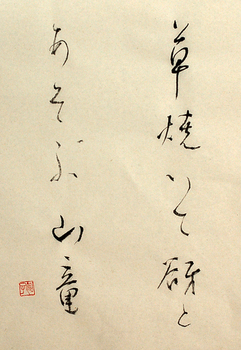 草焼いて谺と
あそぶ山童